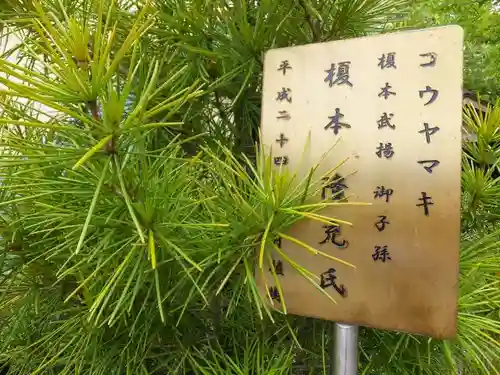 コウヤマキ
榎本武揚御子孫
榎本隆充氏
平成二十四